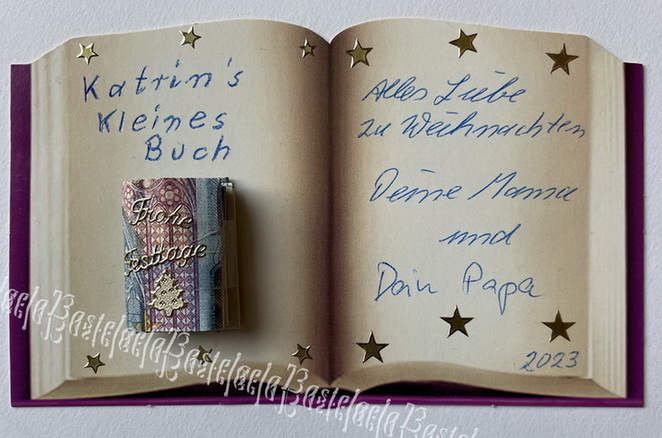 Katrin's
Kleines
Buch
Frohe
Festtage
Alles Liebe
zu Weihnachten
Deine Mama
und
Dein Papa
2023